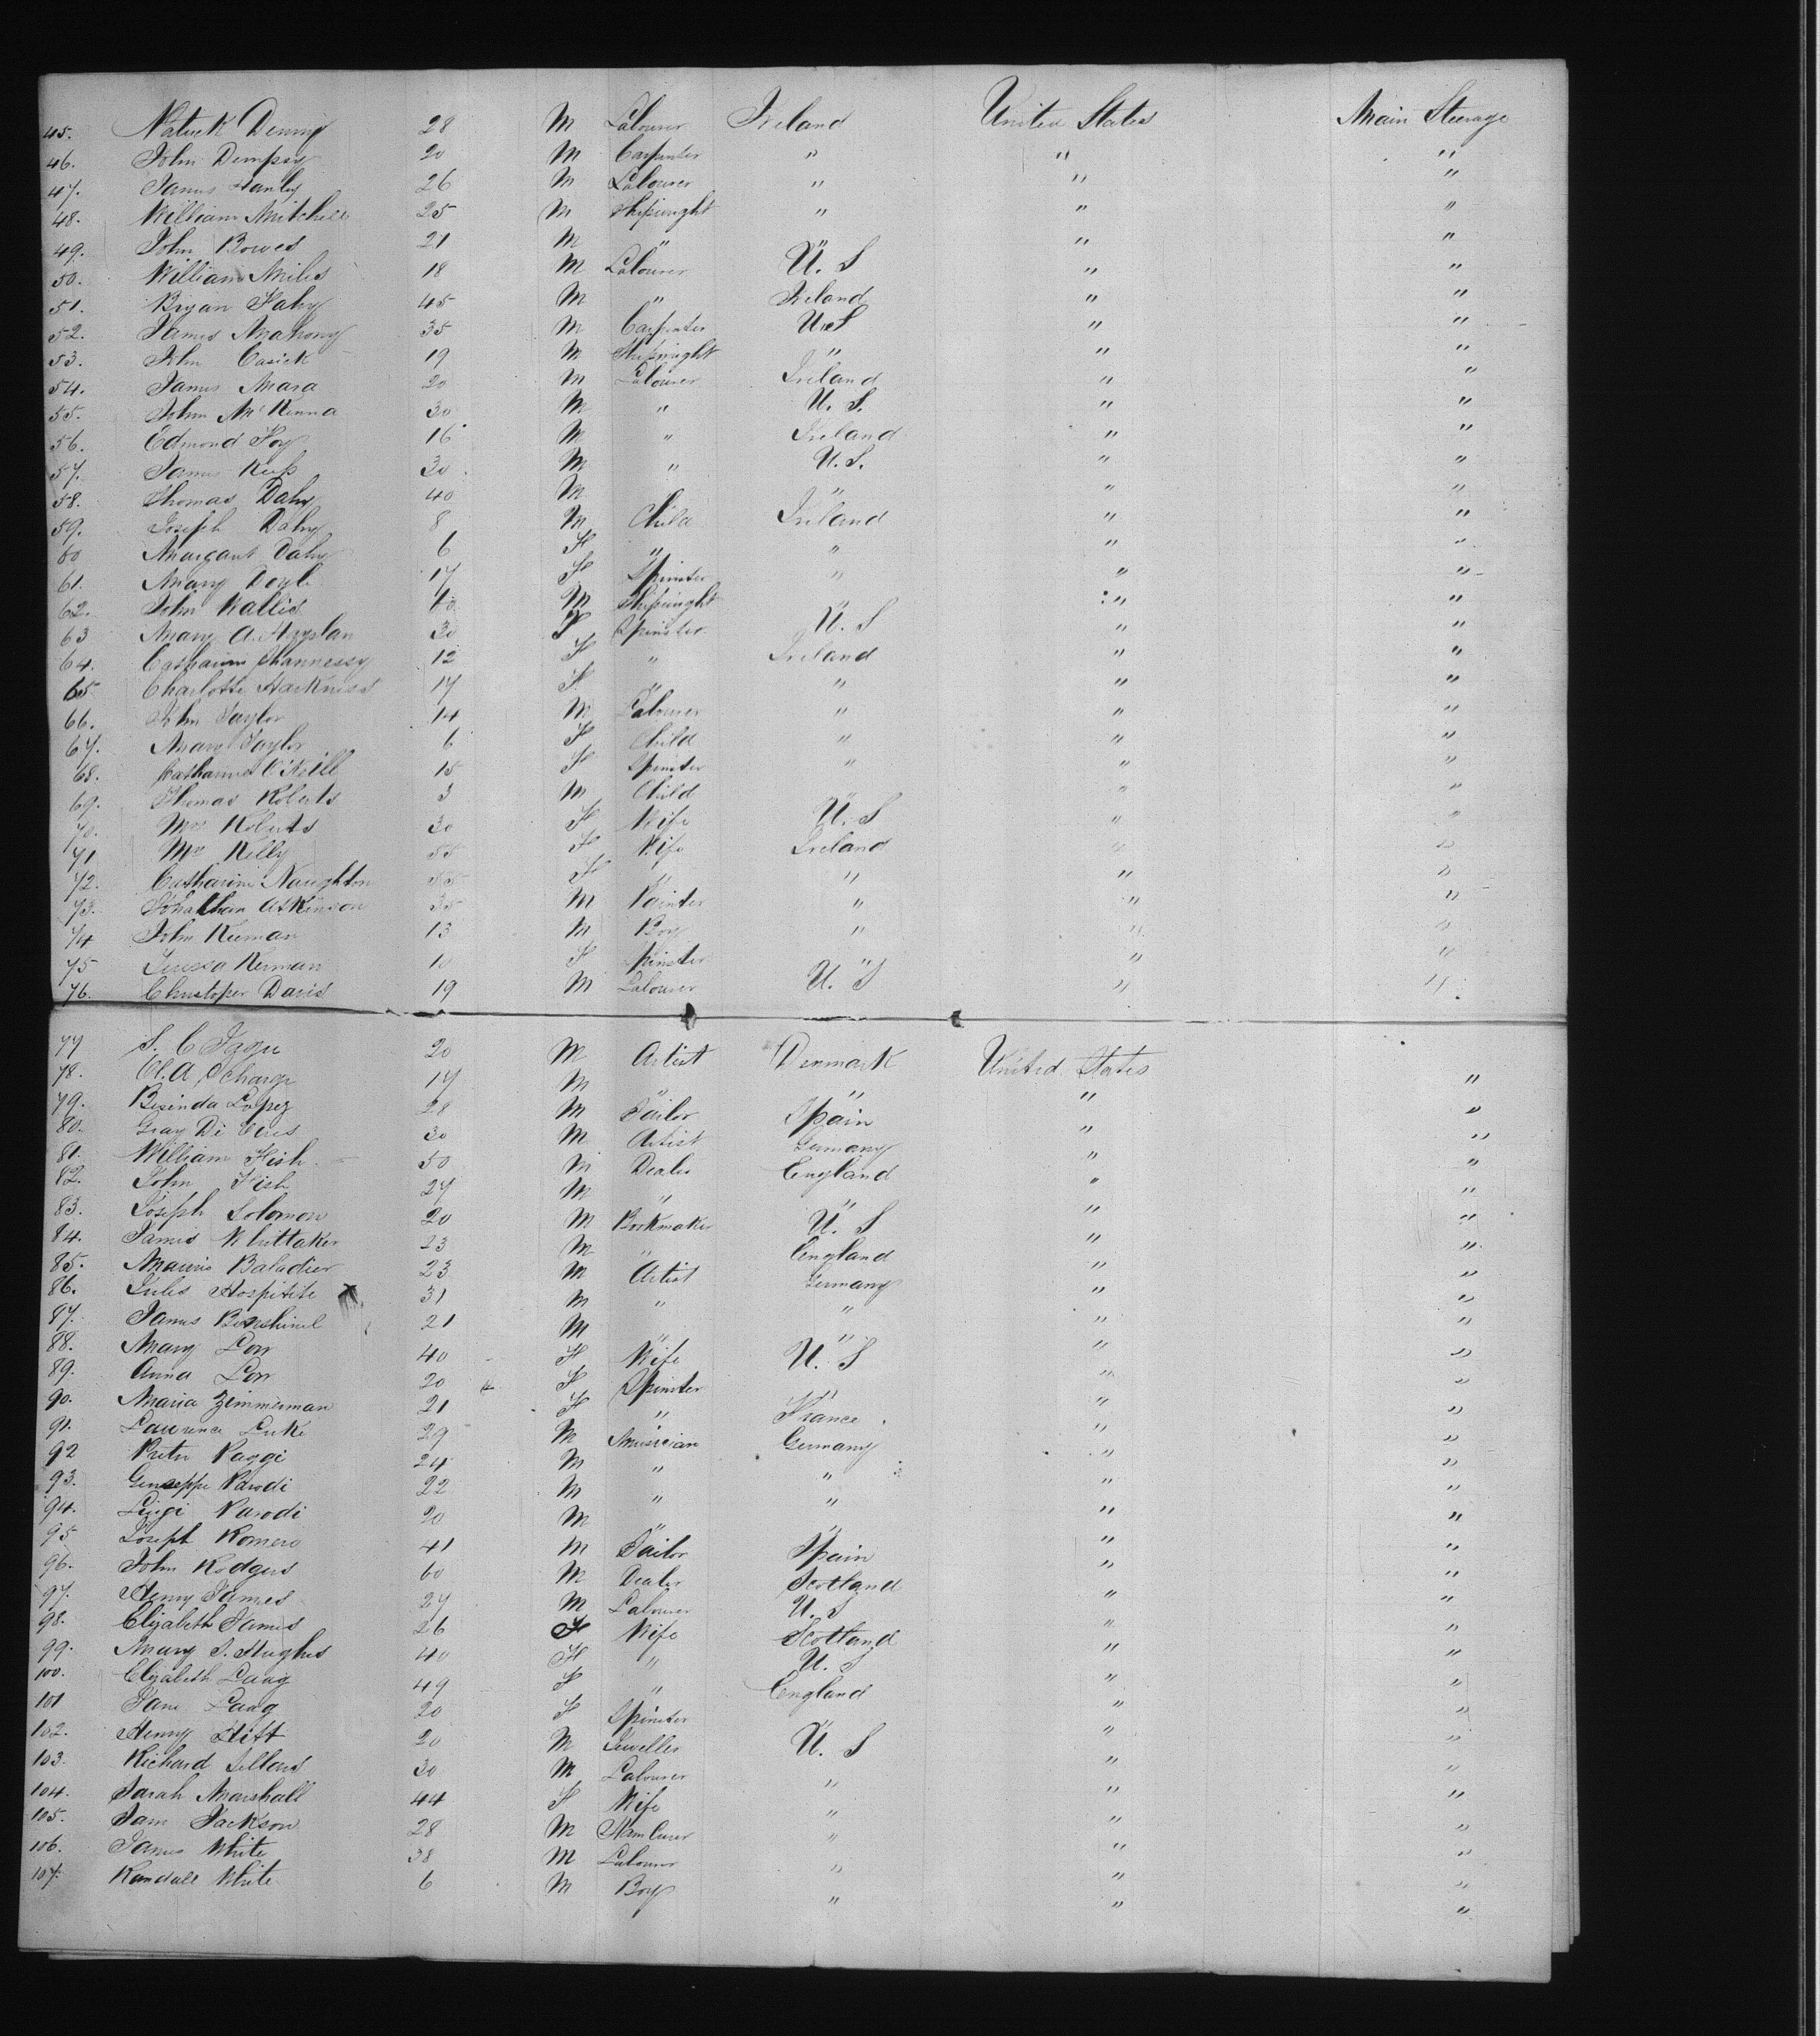 45. Patrick Denny 28 M Labourer Ireland United States Main Steerage
46. John Dempsey 20 M Carpenter " " "
47. James Hanly 26 M Labourer " " "
48. William Mitchell 25 M Shipwright " " "
49. John Bowes 21 M " " " "
50. William Miles 18 M Labourer U. S " "
51. Bryan Fahy 45 M " Ireland " "
52. James Mahony 35 M Carpenter U.S " "
53. John Casick 19 M Shipwright " " "
54. James Mara 20 M Labourer Ireland " "
55. John McKenna 30 M " U. S. " "
56. Edmond Foy 16 M " Ireland " "
57. James 30 M " U.S. " "
58. Thomas Daly 40 M " " "
59. Joseph Daly 8 M Child Ireland " "
60 Margaret Daly 6 F " " " "
61. Mary Doyle 17 F Spinster " " "
62. John Wallis M Shipwright " " "
63 Mary A. 30 F Spinster U. S " "
64. Shannessy 12 F " Ireland " "
65 Charlotte Harkness 17 F " " " "
66. John Taylor 14 M Labourer " " "
67. Mary Taylor 6 F Child " " "
68. Catharine O'Neill 15 F Spinster " " "
69. Thomas Roberts 3 M Child " "
70. Mrs Roberts 30 F Wife U. S " "
71 Mrs Kelly 55 F Wife Ireland " "
72. Catharine Naughton 55 F " " " "
73. Jonathan Atkinson 35 M Painter " " "
74 John Kiernan 13 M Boy " " "
75 Teressa Kiernan 10 F Spinster " " "
76. Christoper Davis 19 M Labourer U. S " "
77 S. C 20 M Artist Denmark United States
78. Cl. A. 17 M " " " "
79. Lopez 28 M Tailor Spain " "
80. Gray Di 30 M Artist Germany " "
81. William Fish 50 M Dealer England " "
82. John Fish 27 M " " " "
83. Joseph Solomon 20 M Bookmaker U. S " "
84. James Whittaker 23 M " England " "
85. Baladier 23 M Artist Germany " "
86. Jules Hospitite 31 M " " " "
87. James 21 M " " " "
88. Mary Low 40 F Wife U. S " "
89. Anna Low 20 F Spinster " " "
90. Maria Zimmerman 21 F " France " "
91. Laurence Luke 29 M Musician Germany " "
92 Peter Paggi 24 M " " " "
93. Genseppe Parodi 22 M " " " "
94. Luigi Parodi 20 M " " " "
95 Joseph Romero 41 M Tailor Spain " "
96. John Rodgers 60 M Dealer Scotland " "
97. Henry James 27 M Labourer U. S " "
98. Elizabeth James 26 F Wife Scotland " "
99. Mary S. Hughes 40 F " U. S " "
100. Elizabeth Laug 49 F " England " "
101 Jane Laug 20 F Spinster " " "
102. Henry Hitt 20 M Jeweller U. S " "
103. Richard Sellers 30 M Labourer " " "
104. Sarah Marshall 44 F Wife " " "
105. Sam Jackson 28 M Ham Curer " " "
106. James White 38 M Labourer " " "
107. Randall White 6 M Boy " " "